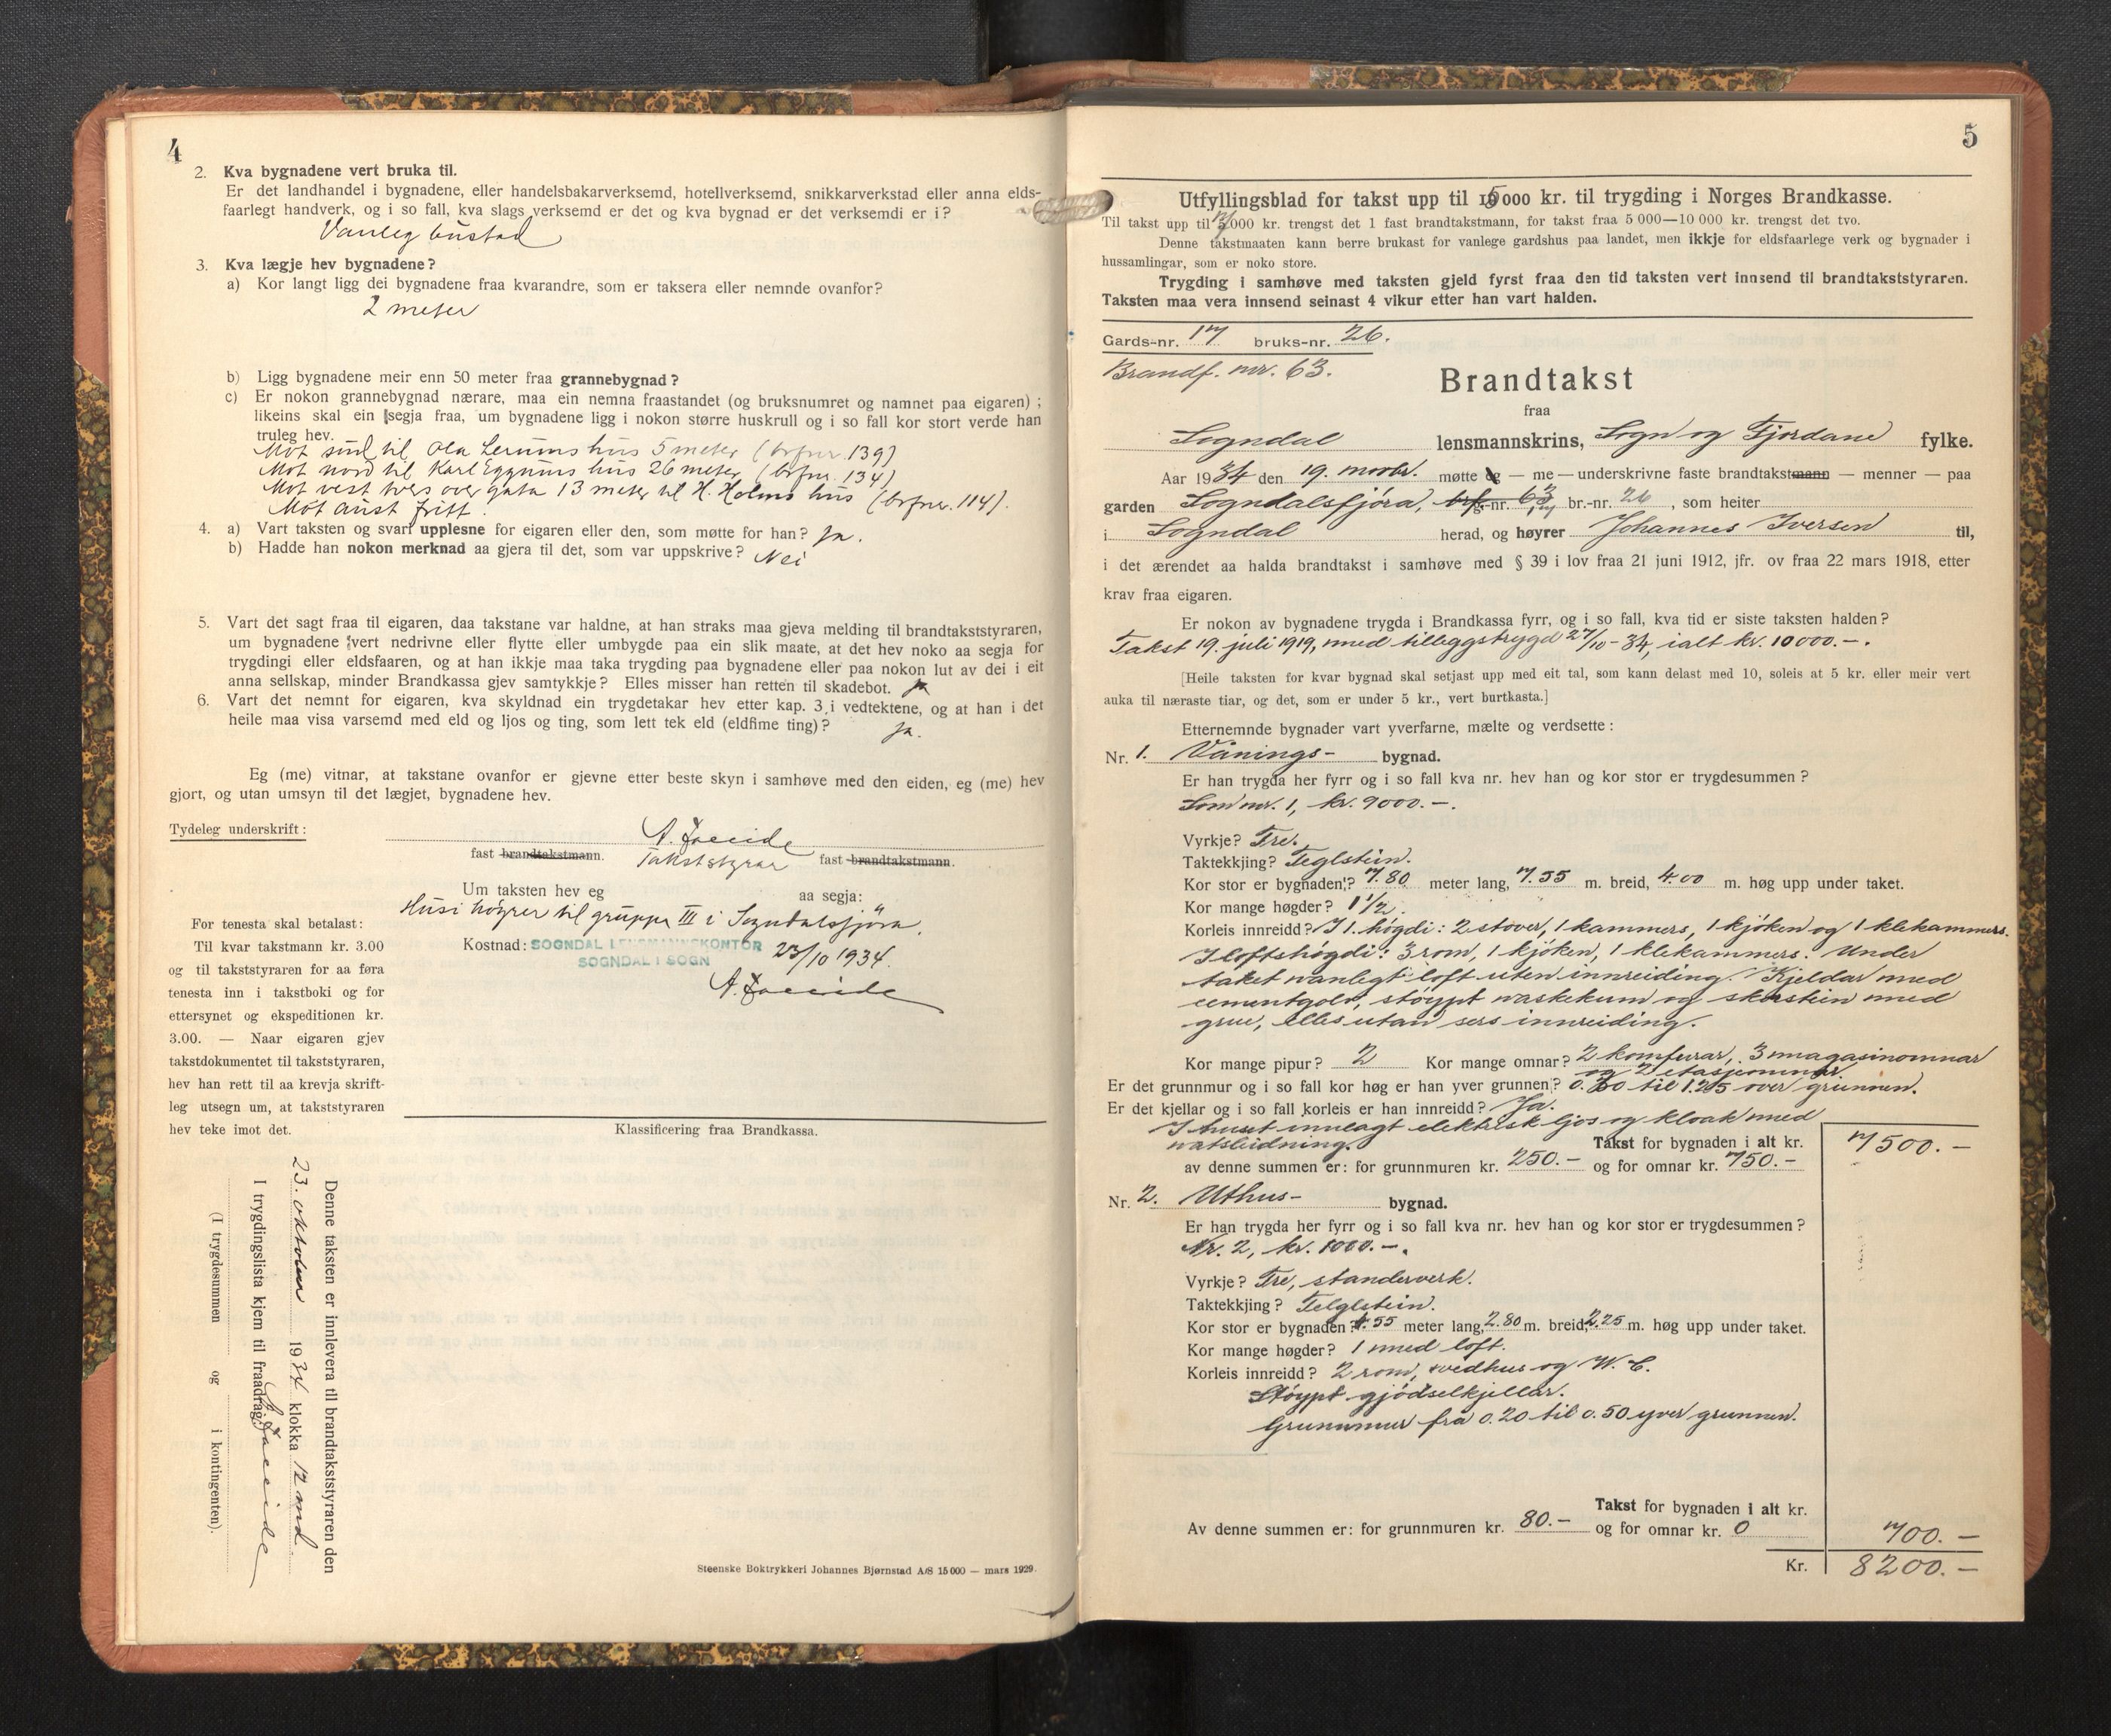 4
2. Kva bygnadene vert bruka til.
Er det landhandel i bygnadene, eller handelsbakarverksemd, hotellverksemd, snikkarverkstad eller anna elds-
faarlegt handverk, og i so fall, kva slags verksemd er det og kva bygnad er det verksemdi er i?
Vanleg bustad
3. Kva lægje hev bygnadene?
a) Kor langt ligg dei bygnadene fraa kvarandre, som er taksera eller nemnde ovanfor?
2 meter
b) Ligg bygnadene meir enn 50 meter fraa grannebygnad?
c) Er nokon grannebygnad nærare, maa ein nemna fraastandet (og bruksnumret og namnet paa eigaren);
likeins skal ein segja fraa, um bygnadene ligg i nokon større huskrull og i so fall kor stort verde han
truleg hev.
Mot sud til Ola Lerums hus 5 meter (brfnr. 139)
Mot nord til Karl Eggums hus 26 meter (brfnr. 134)
Mot vest tvers over gata 13 meter til H. Holms hus (brfnr. 114).
Mot aust fritt.
4. a) Vart taksten og svari upplesne for eigaren eller den, som møtte for han? Ja.
b) Hadde han nokon merknad aa gjera til det, som var uppskrive? Nei
5. Vart det sagt fraa til eigaren, daa takstane var haldne, at han straks maa gjeva melding til brandtakststyraren,
um bygnadene vert nedrivne eller flytte eller umbygde paa ein slik maate, at det hev noko aa segja for
trygdingi eller eldsfaaren, og at han ikkje maa taka trygding paa bygnadene eller paa nokon lut av dei i eit
anna sellskap, minder Brandkassa gjev samtykkje? Elles misser han retten til skadebot. Ja
6. Vart det nemnt for eigaren, kva skyldnad ein trygdetakar hev etter kap. 3 i vedtektene, og at han i det
heile maa visa varsemd med eld og ljos og ting, som lett tek eld (eldfime ting)? Ja.
Eg (me) vitnar, at takstane ovanfor er gjevne etter beste skyn i samhøve med den eiden, eg (me) hev
gjort, og utan umsyn til det lægjet, bygnadene hev.
Tydeleg underskrift:
fast brandtakstmann. Takststyrar fast brandtakstmann.
Um taksten hev eg aa segja:
Husi høyrer til gruppe III i Sogndalsfjøra.
Kostnad: SOGNDAL LENSMANNSKONTOR
SOGNDAL I SOGN 23/10 1934.
For tenesta skal betalast:
Til kvar takstmann kr. 3.00
og til takststyraren for aa føra
tenesta inn i takstboki og for
ettersynet og ekspeditionen kr.
3.00. — Naar eigaren gjev
takstdokumentet til takststyraren,
hev han rett til aa krevja skrift-
leg utsegn um, at takststyraren
hev teke imot det.
Klassificering fraa Brandkassa.
Denne taksten er innlevera til brandtakststyraren den
23. oktober 1934 klokka 12 md.
I trygdingslista kjem til fraadrag:
(I trygdesummen og i kontingenten).
Steenske Boktrykkeri Johannes Bjørnstad A/S 15 000 — mars 1929.
5
Utfyllingsblad for takst upp til 15000 kr. til trygding i Norges Brandkasse.
Til takst upp til 7000 kr. trengst det 1 fast brandtakstmann, for takst fraa 5 000—10 000 kr. trengst det tvo.
Denne takstmaaten kann berre brukast for vanlege gardshus paa landet, men ikkje for eldsfaarlege verk og bygnader i
hussamlingar, som er noko store.
Trygding i samhøve med taksten gjeld fyrst fraa den tid taksten vert innsend til brandtakststyraren.
Taksten maa vera innsend seinast 4 vikur etter han vart halden.
Gards-nr. 17 bruks-nr. 26.
Brandf. nr. 63.
Brandtakst
fraa
Sogndal lensmannskrins, Sogn og Fjordane fylke.
Aar 1934 den 19. novbr. møtte eg — me — underskrivne faste brandtakstmann — menner — paa
garden Sogndalsfjøra, brf.-nr. 63 br.-nr. 26, som heiter
i Sogndal herad, og høyrer Johannes Iversen til,
i det ærendet aa halda brandtakst i samhøve med § 39 i lov fraa 21 juni 1912, jfr. ov fraa 22 mars 1918, etter
krav fraa eigaren.
Er nokon av bygnadene trygda i Brandkassa fyrr, og i so fall, kva tid er siste taksten halden?
Takst 19. juli 1919, med tilleggstrygd 27/10-34, ialt kr. 10000.-.
[Heile taksten for kvar bygnad skal setjast upp med eit tal, som kann delast med 10, soleis at 5 kr. eller meir vert
auka til næraste tiar, og det, som er under 5 kr., vert burtkasta.]
Etternemnde bygnader vart yverfarne, mælte og verdsette:
Nr. 1. Vånings- bygnad.
Er han trygda her fyrr og i so fall kva nr. hev han og kor stor er trygdesummen?
Som nr. 1, kr. 9000.-.
Vyrkje? Tre.
Taktekkjing? Teglstein.
Kor stor er bygnaden? 7.80 meter lang, 7.55 m. breid, 4.00 m. høg upp under taket.
Kor mange høgder? 1 1/2.
Korleis innreidd? I 1. høgdi: 2 stover, 1 kammers, 1 kjøken og 1 klekammers.
I loftshøgdi: 3 rom, 1 kjøken, 1 klekammers. Under
taket vanlegt loft uten innreiding. Kjeldar med
cementgolv, støypt vaskekum og skorstein med
grue, elles utan sers innreiding.
Kor mange pipur? 2 Kor mange omnar? 2 komfurar, 3 magasinomnar
og 2 etasjeomnar
Er det grunnmur og i so fall kor høg er han yver grunnen? 0.60 til 1.25 over grunnen.
Er det kjellar og i so fall korleis er han innreidd? Ja.
I huset innlagt elektrisk ljos og kloak med
vatsleidning.
Takst for bygnaden i alt kr. 7500.-
av denne summen er: for grunnmuren kr. 250.- og for omnar kr. 750.-
Nr. 2. Uthus- bygnad.
Er han trygda her fyrr og i so fall kva nr. hev han og kor stor er trygdesummen?
Nr. 2, kr. 1000.-.
Vyrkje? Tre, standerverk.
Taktekkjing? Telglstein.
Kor stor er bygnaden? 4.55 meter lang, 2.80 m. breid, 2.25 m. høg upp under taket.
Kor mange høgder? 1 med loft.
Korleis innreidd? 2 rom, vedhus og W. C.
Støypt gjødselkjellar.
Grunnmur fra 0.20 til 0.50 yver grunnen.
Takst for bygnaden i alt kr.
Av denne summen er: for grunnmuren kr. 80.- og for omnar kr. 0 700.-
Kr. 8200.-